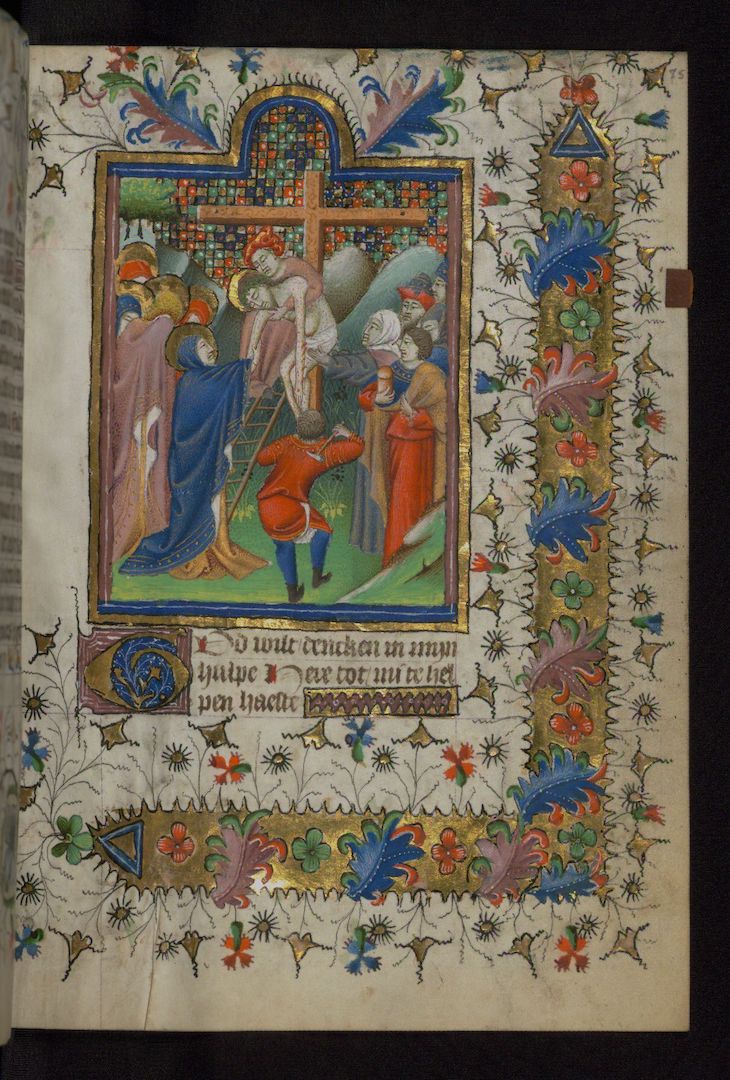 God wilt dencken in mijn
hulpe Here tot mi te hel
pen haeste
75